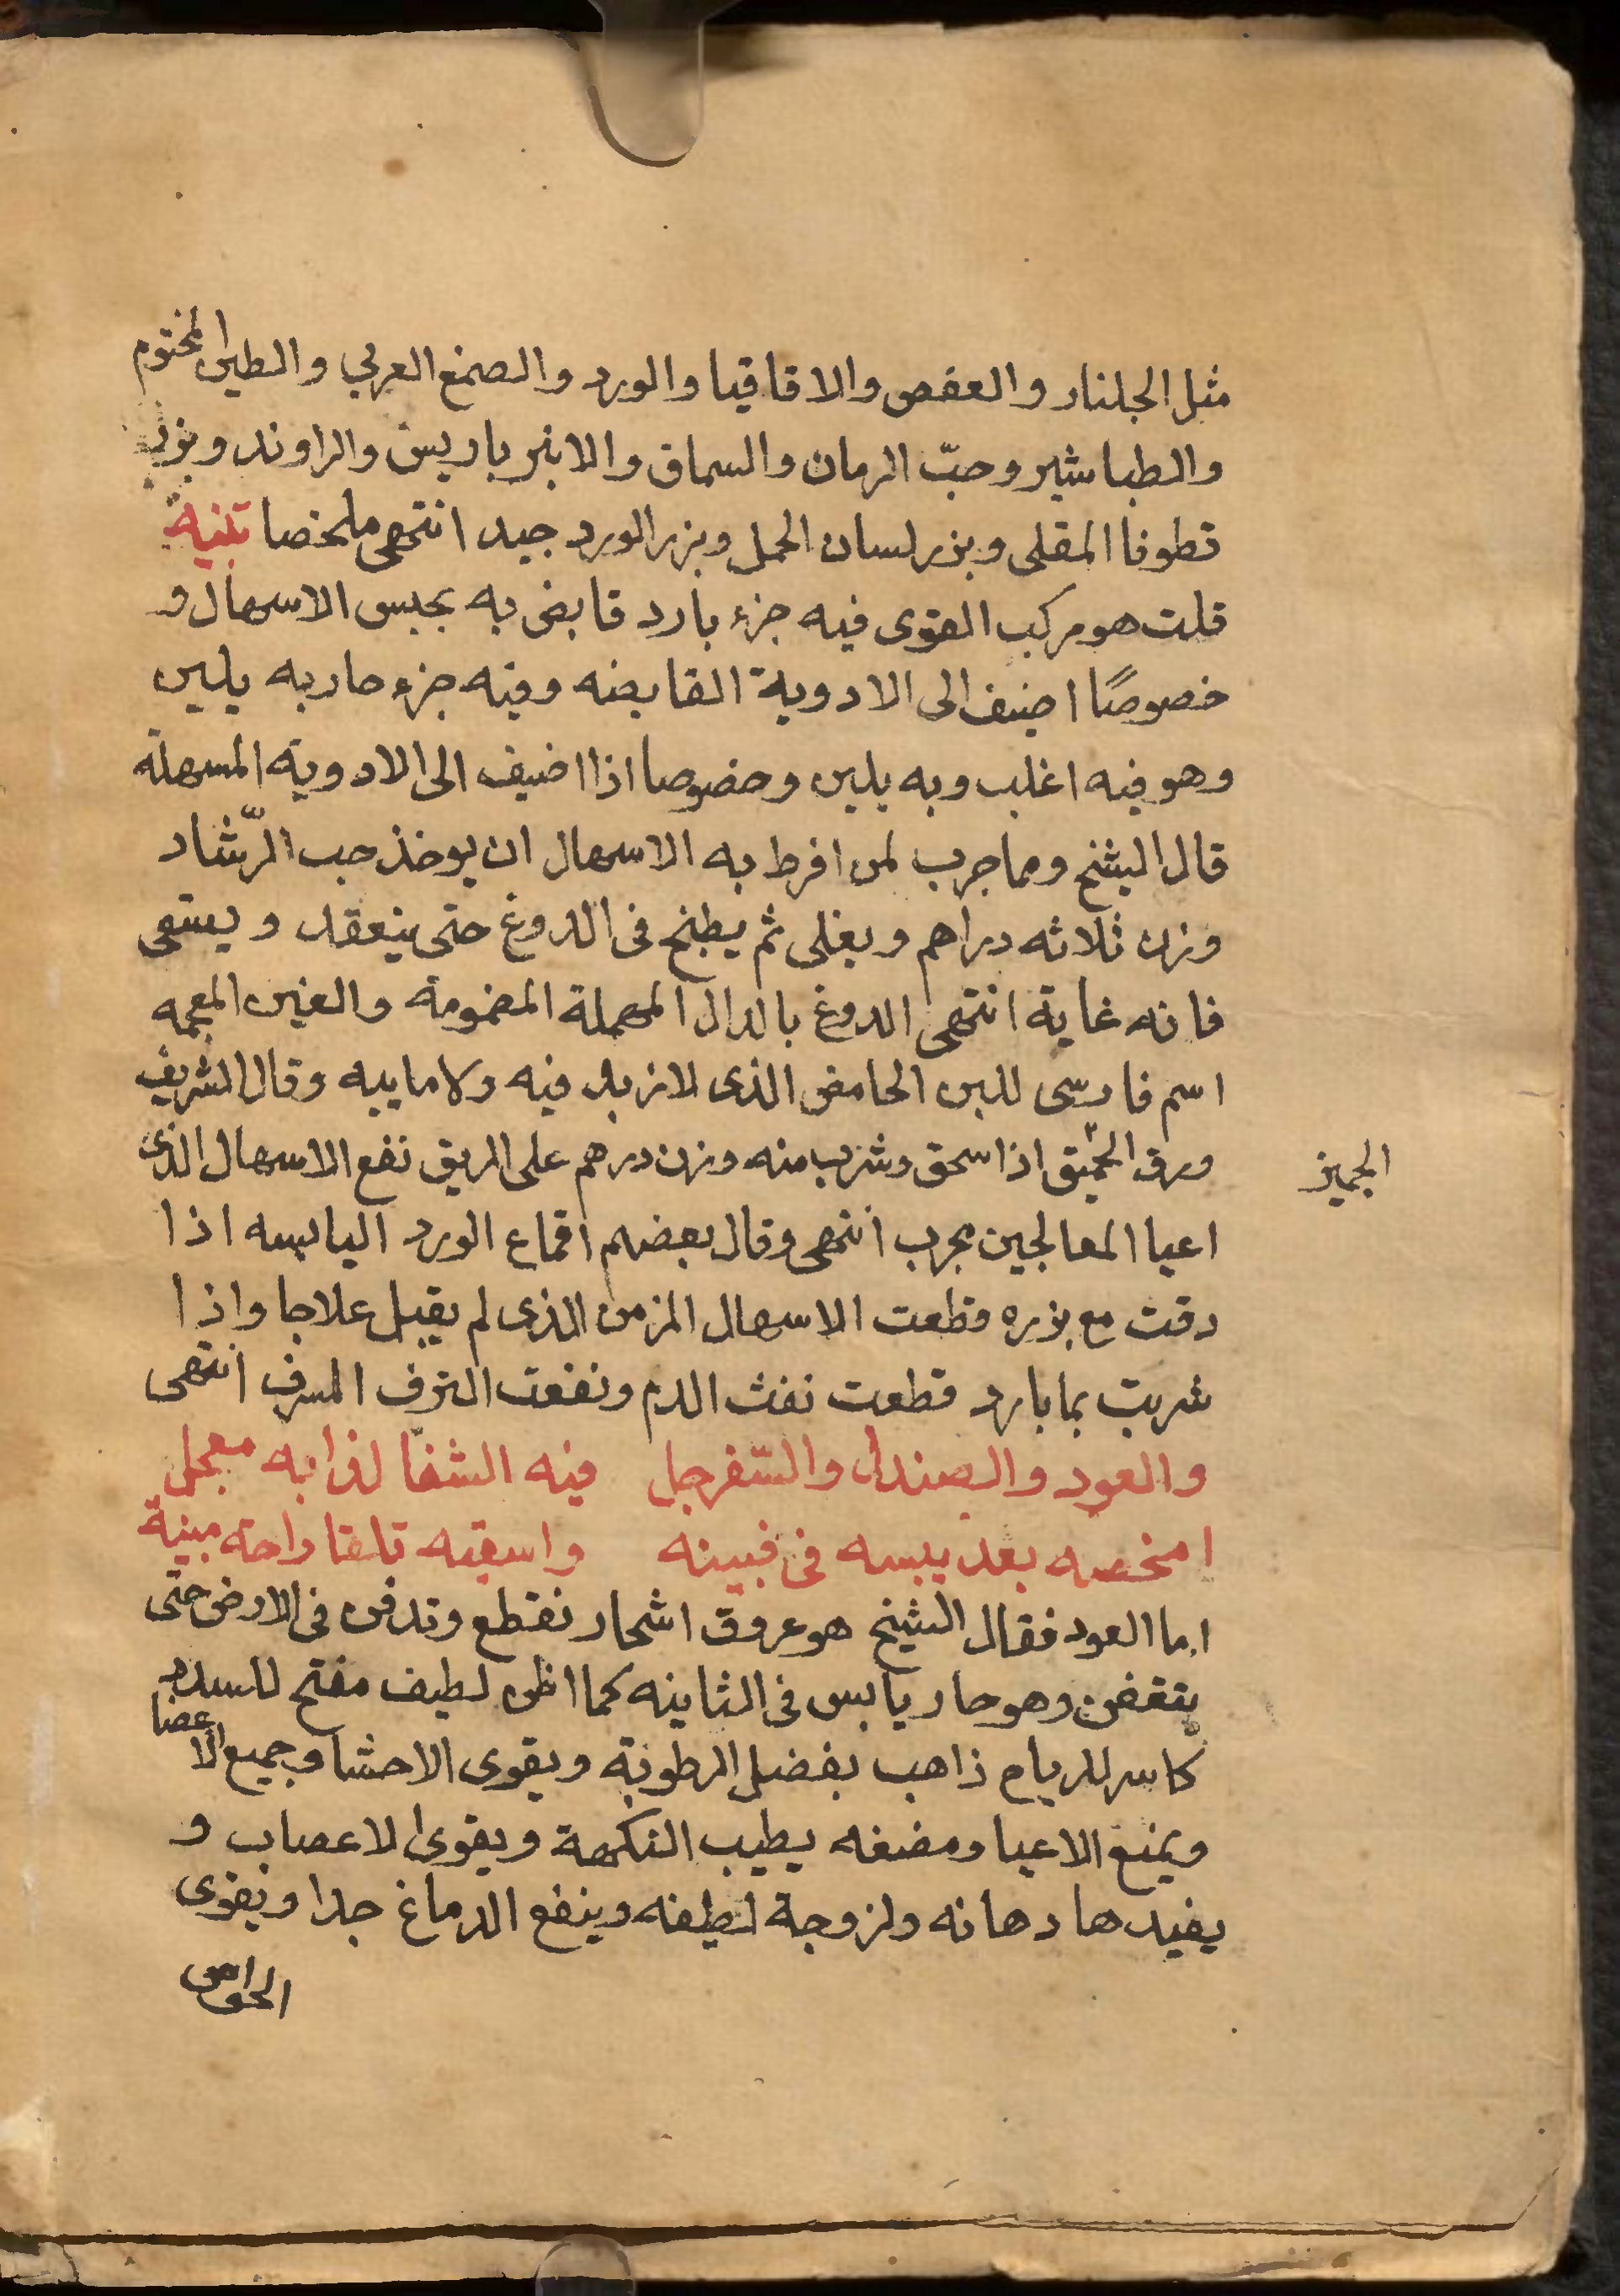 مثل الجلنار والعفص والاقاقيا والورد والصمغ العربي والطين المختوم
والطباشير وحبّ الرمان والسماق والانبرباريس والراوند وبزر
قطونا المقلى وبزر لسان الحمل وبزر الورد جيد انتهى ملخصا تنبيه
قلت هو مركب القوى فيه جزء بارد قابض به يحبس الاسهال و
خصوصًا اضيف الى الادوية القابضه وفيه جزء حار به يلين
وهو فيه اغلب وبه يلين وخصوصا اذا اضيف الى الادوية المسهلة
قال الشيخ ومما جرب لمن افرط به الاسهال ان يوخذ حب الرّشاد
وزن ثلاثه دراهم ويغلى ثم يطبخ فى الدوغ حتى ينعقد ويسقى
فانه غاية انتهى الدوغ بالدال المهملة المضمومة والغين المعجمه
اسم فارسى للبن الحامض الذى لا زبد فيه ولا ماييه وقال الشريف
ورق الجميق اذا سحق وشرب منه وزن درهم على الريق نفع الاسهال الذى
الجميز
اعيا المعالجين مجرب انتهى وقال بعضهم اقماع الورد اليابسه اذا
دقت مع بزره قطعت الاسهال المزمن الذى لم يقبل علاجا واذا
شربت بما بارد قطعت نفث الدم ونفعت النزف المسرف انتهى
والعود والصندل والسّفرجل فيه الشفا لذا به معجل
امخصه بعد يبسه فى قبينه واسقيه تلقا راحة مبينة
اما العود فقال الشيخ هو عروق اشجار تقطع وتدفن فى الارض حتى
يتعفن وهو حار يابس فى الثانيه كما اظن لطيف مفتح للسدد
كاسر للرياح ذاهب بفضل الرطوبة ويقوى الاحشا وجميع الاعضا
ويمنع الاعيا ومضغه يطيب النكهة ويقوى الاعصاب و
يفيدها دهانه ولزوجة لطيفه وينفع الدماغ جدا ويقوى
الحواس